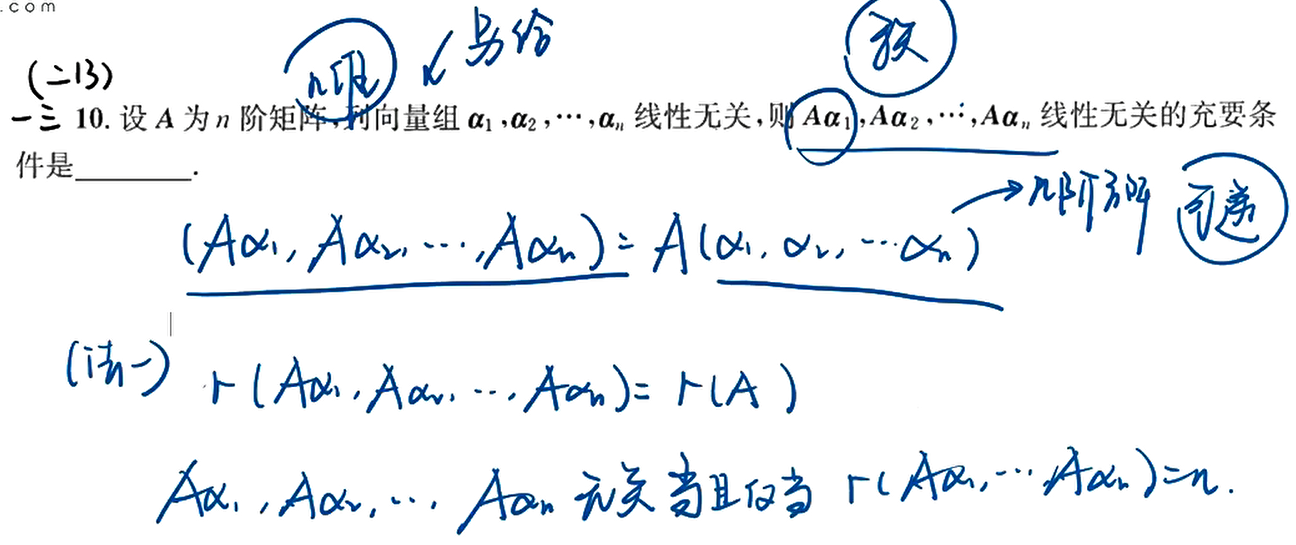 .com
n维 另给 无关
(二13)
一三 10. 设 A 为 n 阶矩阵,列向量组 α₁,α₂,⋯,αₙ 线性无关,则 Aα₁,Aα₂,⋯,Aαₙ 线性无关的充要条
件是________.
→n阶方阵 可逆
(Aα₁, Aα₂, ⋯, Aαₙ) = A(α₁, α₂, ⋯αₙ)
(法一) r(Aα₁, Aα₂, ⋯, Aαₙ) = r(A)
Aα₁, Aα₂, ⋯, Aαₙ 无关当且仅当 r(Aα₁, ⋯, Aαₙ)=n.